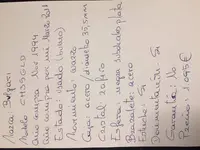 Marca Bvlgari
Modelo CH35GLD
Año compra Nov 1994
Año compra por mi Marzo 2011
Estado: usado
Movimiento: cuarzo
Caja: acero / diametro 35,5mm
Cristal: zafiro
Esfera: negra subdiales plata
Brazalete: acero
Estuche: Si
Documentación: Si
Garantía: No
Precio: 1.095€